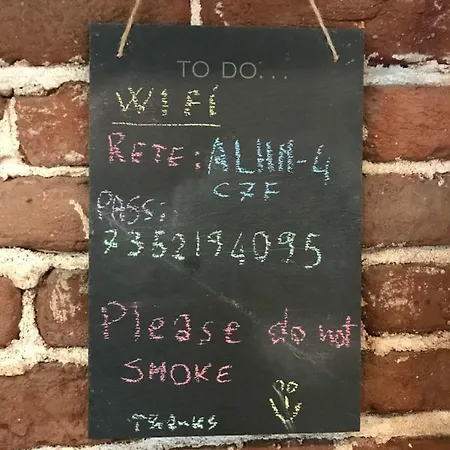 TO DO...
WIFI
RETE: ALHN-4
C7F
PASS:
7352194095
Please do not
SMOKE
Thanks